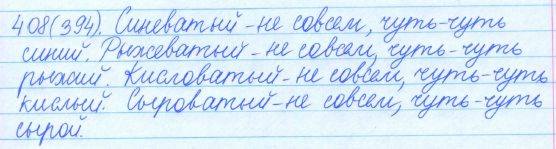 408(394). Синеватый - не совсем, чуть-чуть
синий. Рыжеватый - не совсем, чуть-чуть
рыжий. Кисловатый - не совсем, чуть-чуть
кислый. Сыроватый - не совсем, чуть-чуть
сырой.